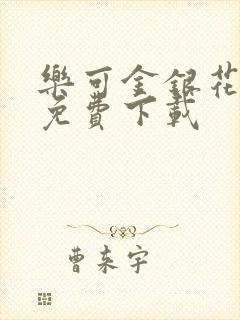 樂可金銀花
免費下載
曹来宇